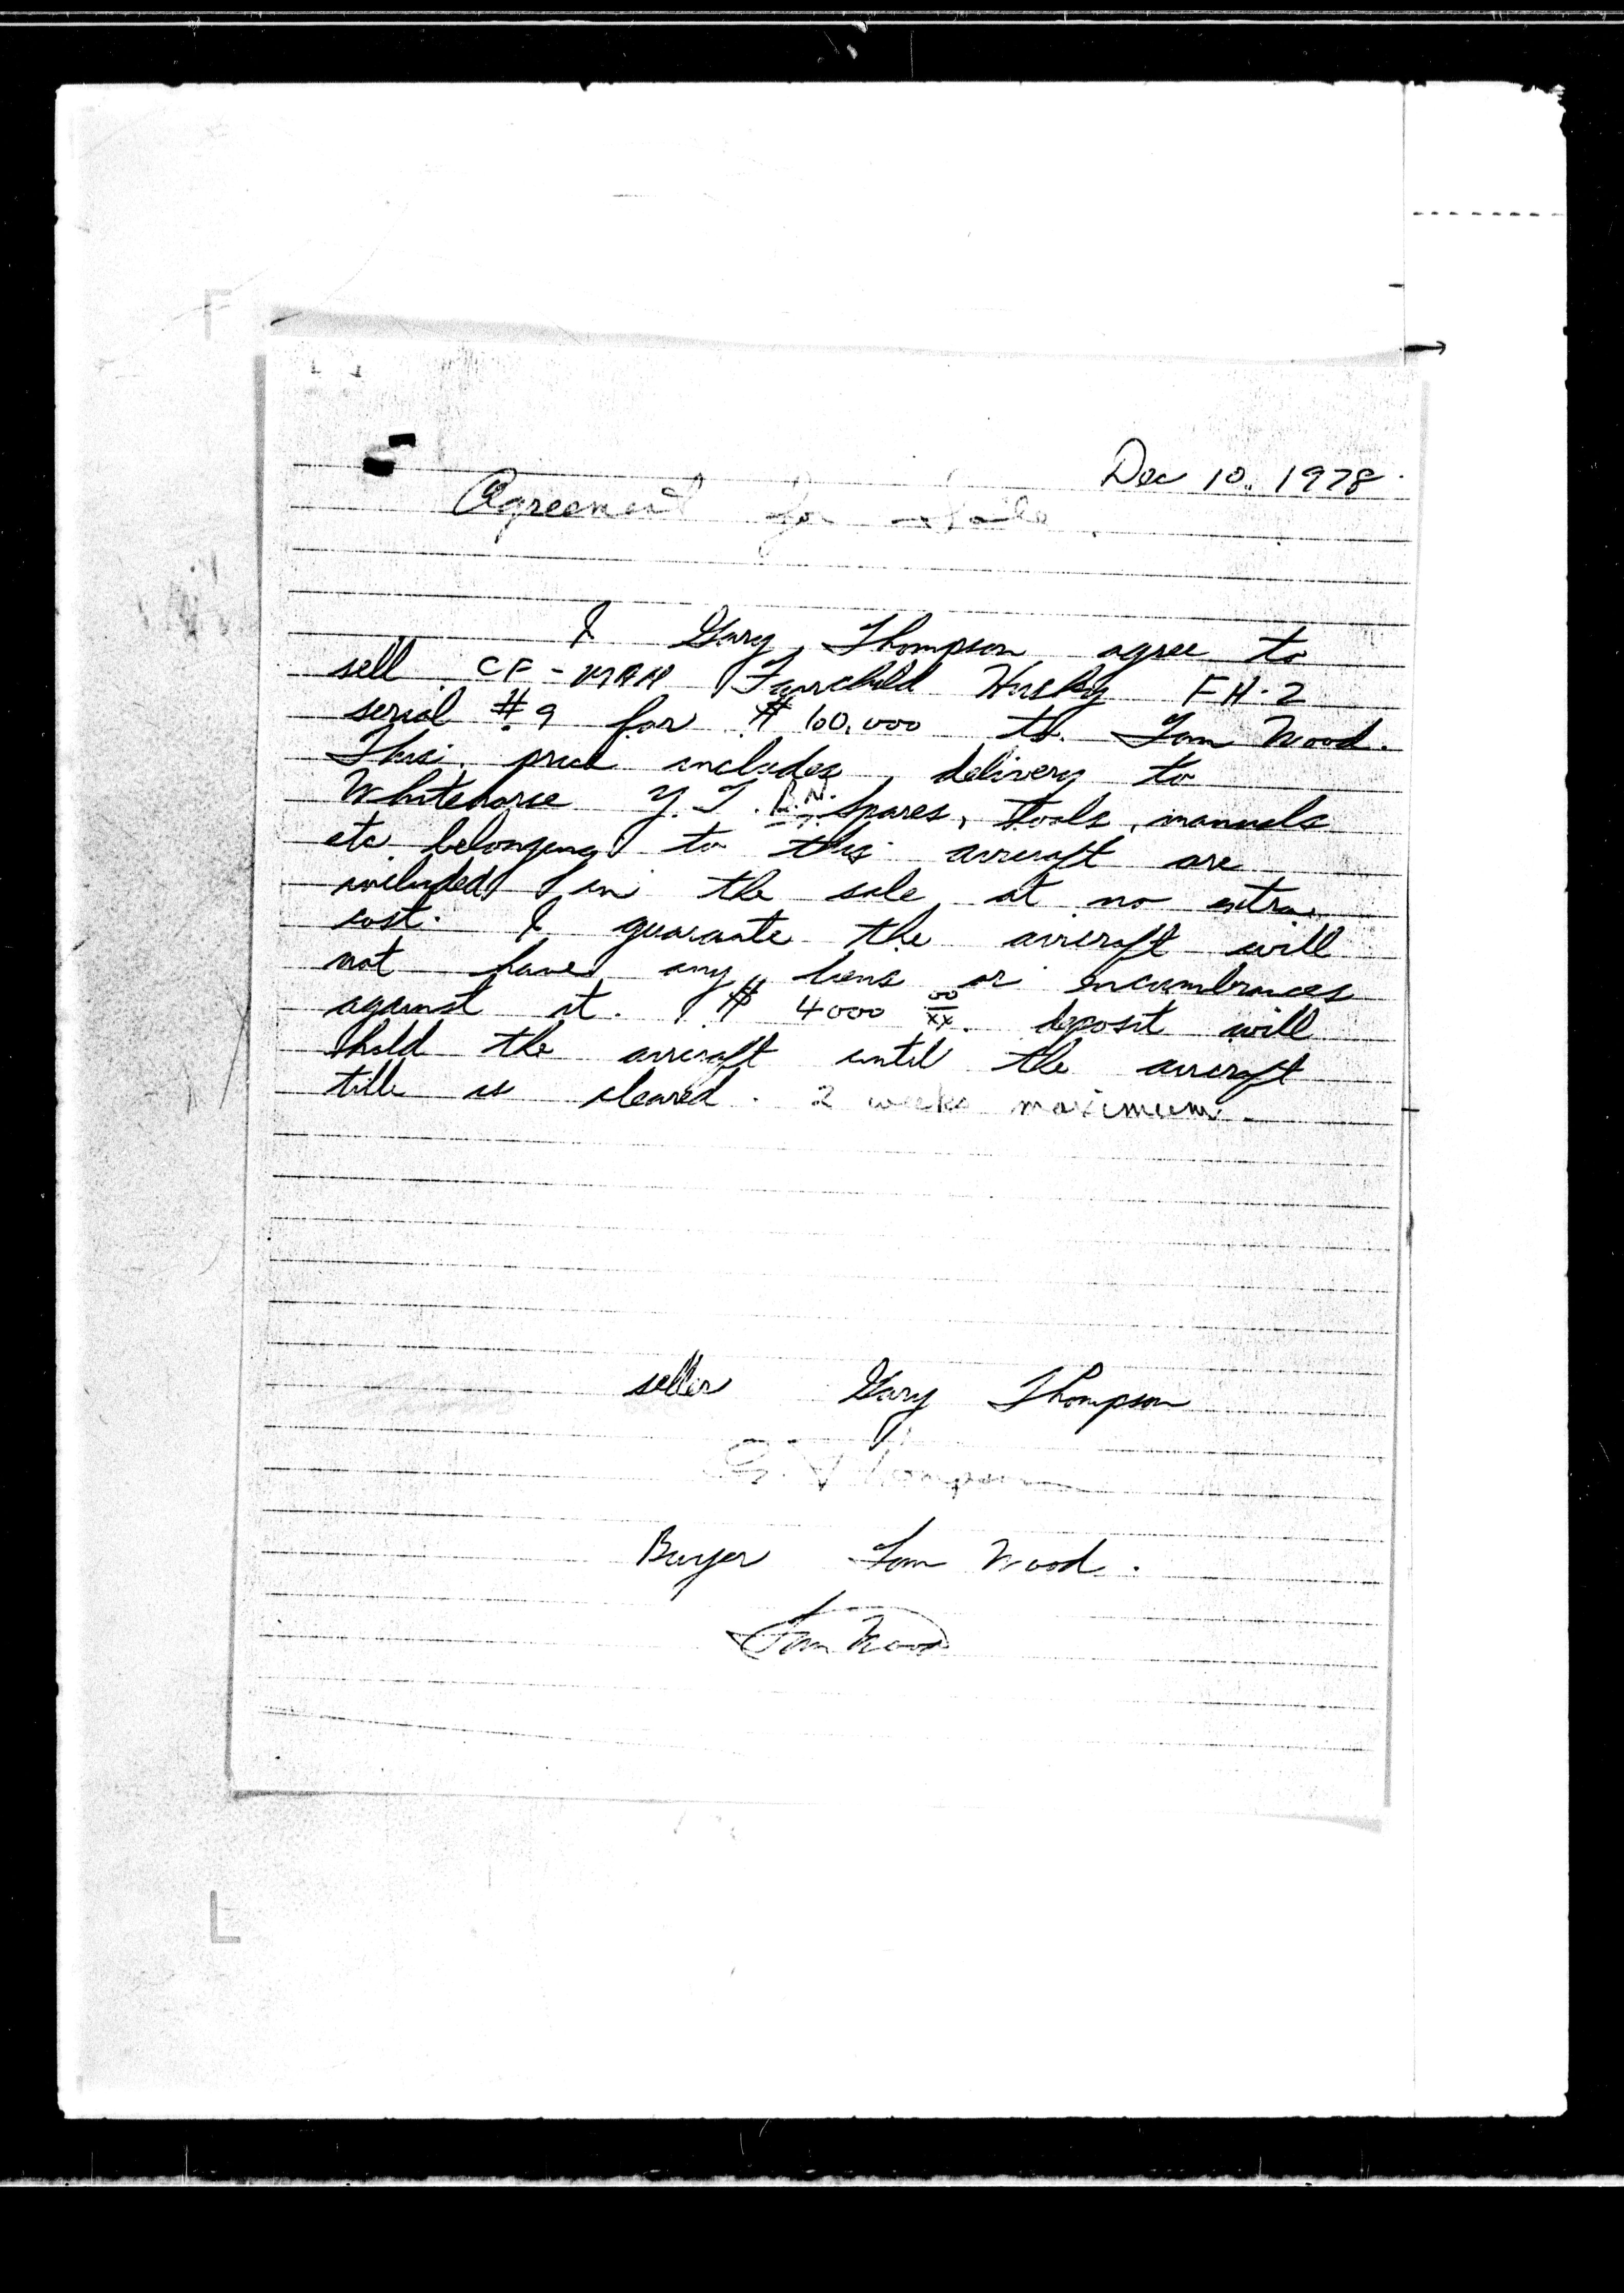 Dec 10, 1978.
Agreement for Sale
I Gary Thompson agree to
sell CF-MAN Fairchild Husky FH-2
serial #9 for $ 100,000 to Tom Wood.
This price includes delivery to
Whitehorse Y.T. Spares, tools, manuals
etc belonging to this aircraft are
included in the sale at no extra
cost. I guarante the aircraft will
not have any liens or encumbrances
against it. $ 4000 00/xx. deposit will
hold the aircraft until the aircraft
title is cleared. 2 weeks maximum.
seller Gary Thompson
G. Thompson
Buyer Tom Wood.
Tom Wood
F
L